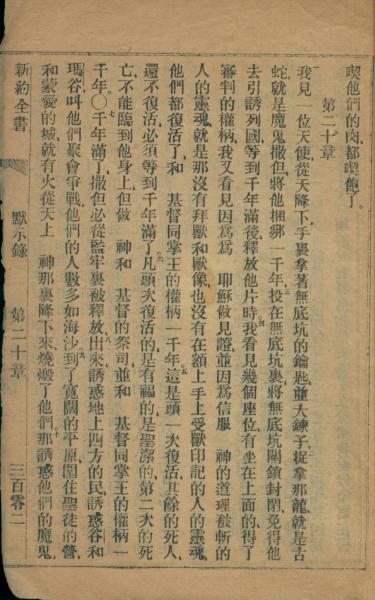 喫他們的肉、都喫飽了。
第二十章
我見一位天使、從天降下、手裏拿著無底坑的鑰匙、並大鍊子、捉拿那龍、就是古
蛇、就是魔鬼撒但、將他捆綁一千年、投在無底坑裏、將無底坑關鎖封閉、免得他
去引誘列國、等到千年滿後、釋放他片時、我看見幾個座位、有坐在上面的、得了
審判的權柄、我又看見因爲爲　耶穌做見證、並因爲信服　神的道理被斬的
人的靈魂、就是那沒有拜獸和獸像、也沒有在額上手上受獸印記的人的靈魂、
他們都復活了、和　基督同掌王的權柄一千年、這是頭一次復活、其餘的死人、
還不復活、必須等到千年滿了、凡頭次復活的是有福的、是聖潔的、第二次的死
亡、不能臨到他身上、但做　神和　基督的祭司、並和　基督同掌王的權柄一
千年、〇千年滿了、撒但必從監牢裏被釋放出來、誘惑地上四方的民、誘惑谷和
瑪谷、叫他們聚會爭戰、他們的人數多如海沙、到了寬闊的平原、圍住聖徒的營、
和蒙愛的城、就有火從天上　神那裏降下來、燒燬了他們、那誘惑他們的魔鬼、
新約全書　默示錄　第二十章　三百零二